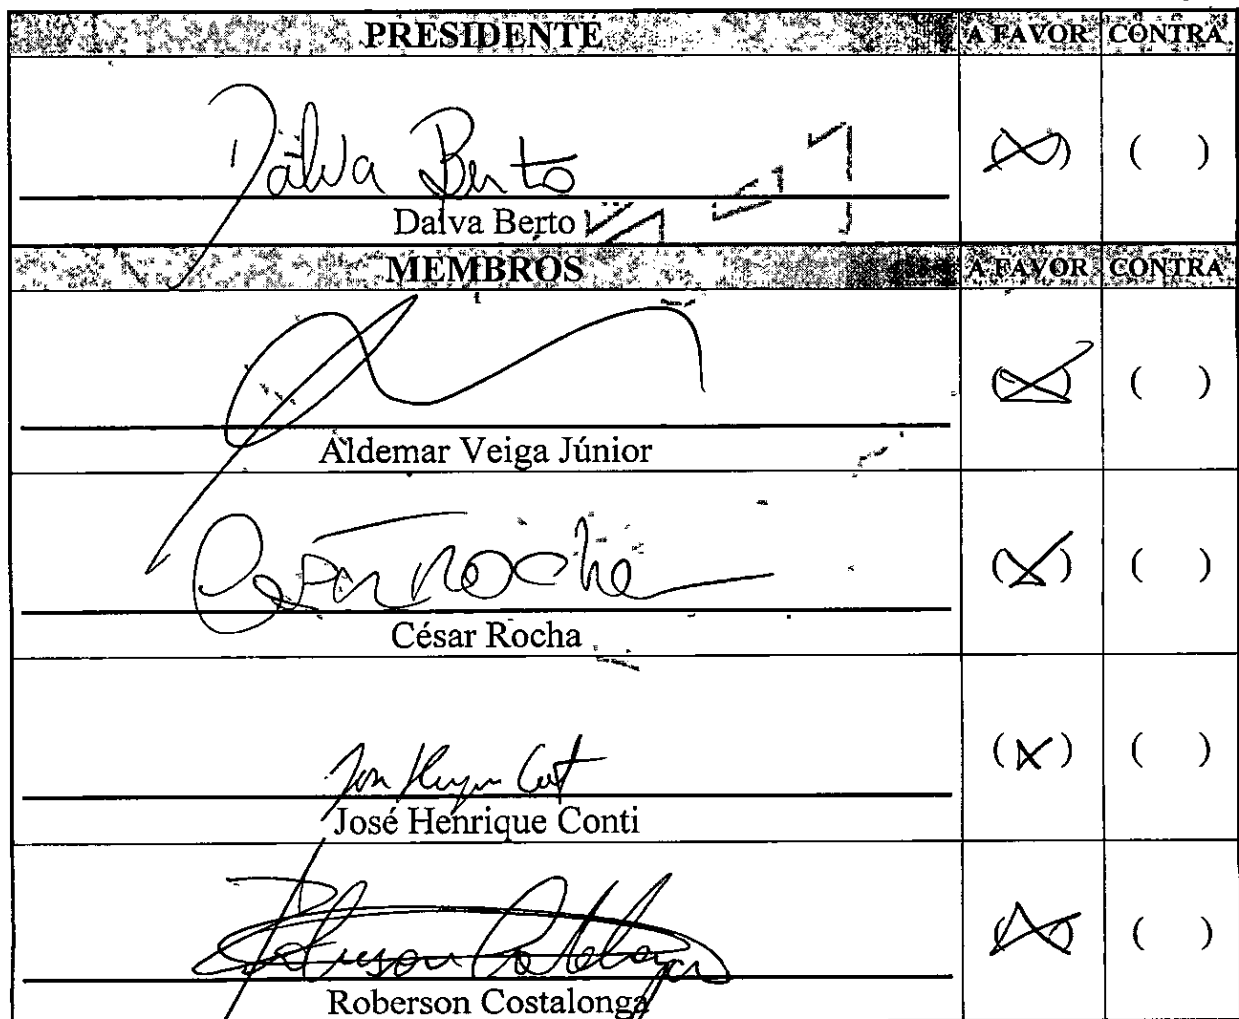 PRESIDENTE A FAVOR CONTRA
Dalva Berto (X) ( )
Dalva Berto
MEMBROS A FAVOR CONTRA
(X) ( )
Aldemar Veiga Júnior
César Rocha (X) ( )
César Rocha
(X) ( )
José Henrique Conti
Roberson Costalonga (X) ( )
Roberson Costalonga